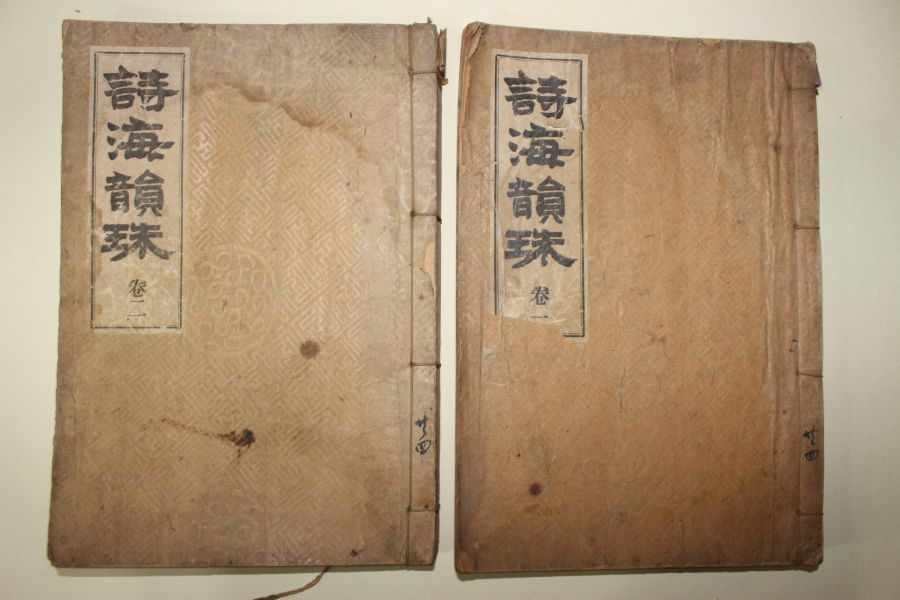 詩海韻珠
卷二
廿四
詩海韻珠
卷一
廿四